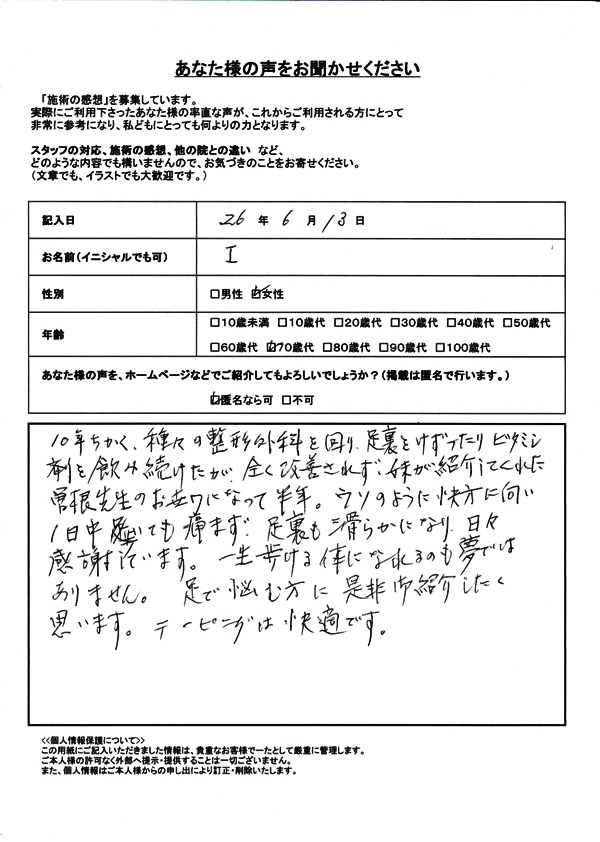 あなた様の声をお聞かせください
「施術の感想」を募集しています。
実際にご利用下さったあなた様の率直な声が、これからご利用される方にとって
非常に参考になり、私どもにとっても何よりの力となります。
スタッフの対応、施術の感想、他の院との違い など、
どのような内容でも構いませんので、お気づきのことをお寄せください。
(文章でも、イラストでも大歓迎です。)
記入日 26 年 6 月 13 日
お名前(イニシャルでも可) I
性別 □男性 ☑女性
年齢 □10歳未満 □10歳代 □20歳代 □30歳代 □40歳代 □50歳代
□60歳代 ☑70歳代 □80歳代 □90歳代 □100歳代
あなた様の声を、ホームページなどでご紹介してもよろしいでしょうか?(掲載は匿名で行います。)
☑匿名なら可 □不可
10年ちかく、種々の整形外科を回り、足裏をけずったりビタミン
剤を飲み続けたが、全く改善されず、妹が紹介してくれた
曽根先生のお世わになって半年。ウソのように快方に向い
1日中 ても痛まず、足裏も滑らかになり、日々
感謝しています。一生歩ける体になれるのも夢では
ありません。足で悩む方に是非御紹介したく
思います。テーピングは快適です。
<<個人情報保護について>>
この用紙にご記入いただきました情報は、貴重なお客様データとして厳重に管理します。
ご本人様の許可なく外部へ提示・提供することは一切ございません。
また、個人情報はご本人様からの申し出により訂正・削除いたします。